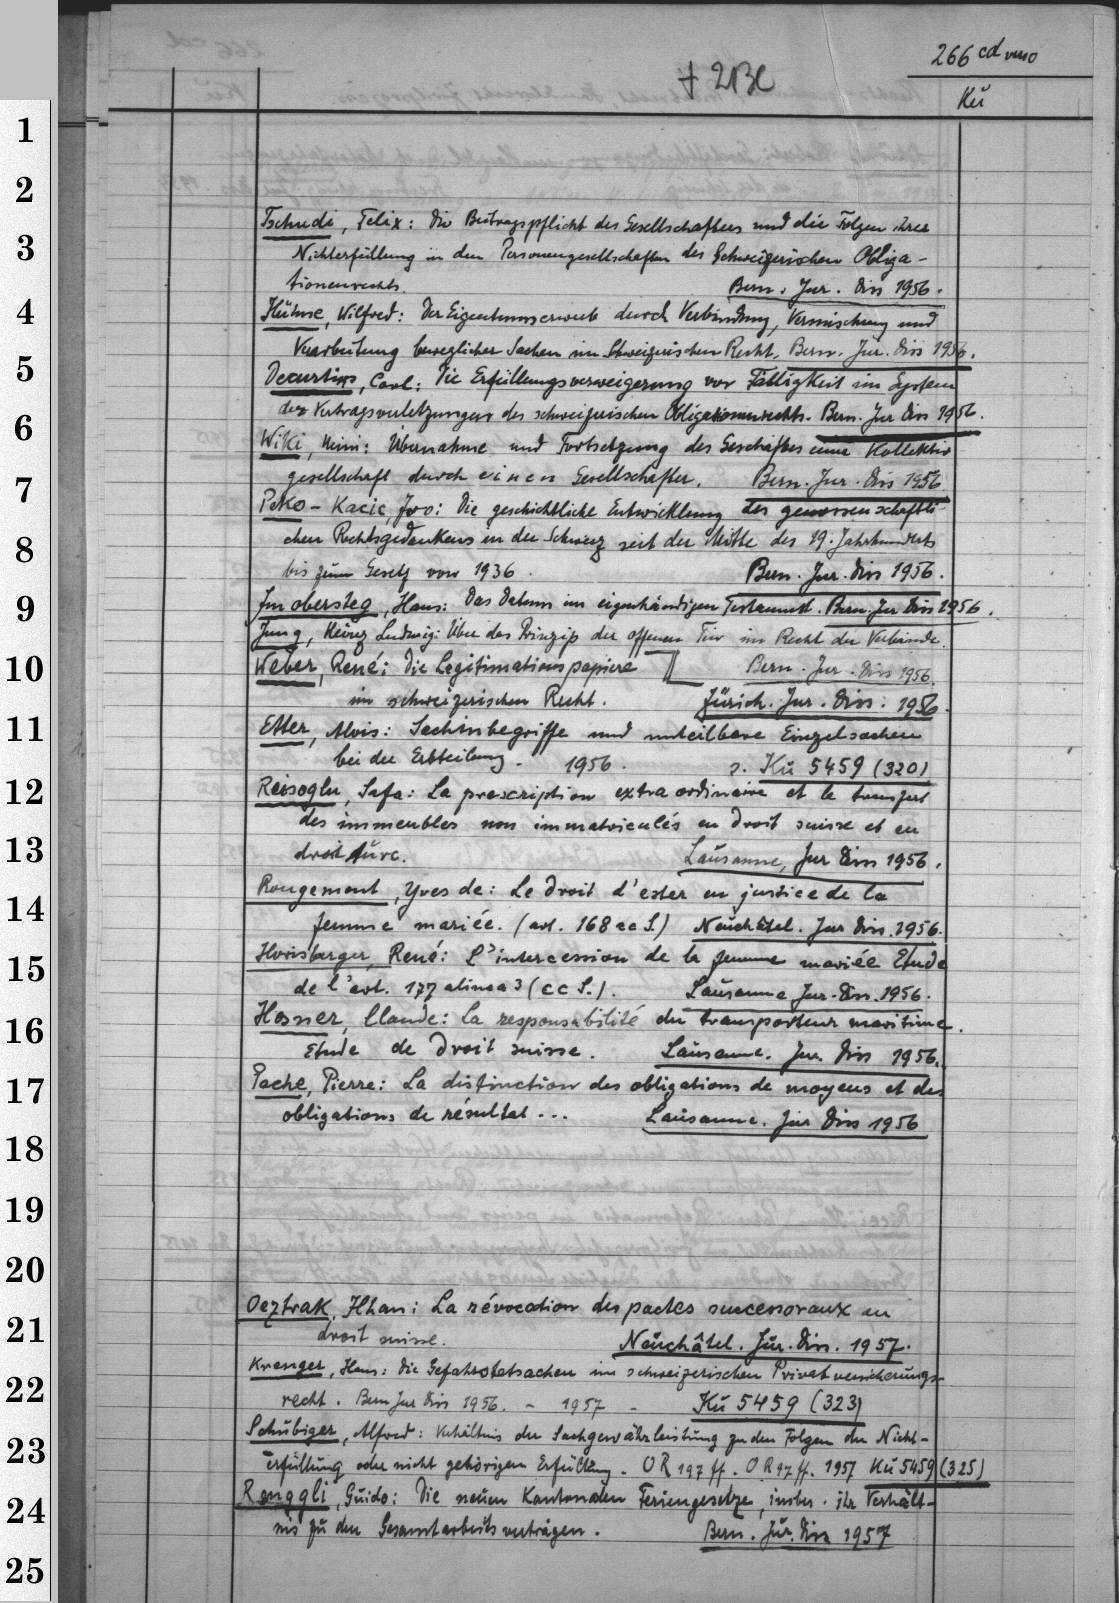 266 cd verso
+ 2BC
Kü
1
2
Tschudi, Felix: Die Beitragspflicht des Gesellschafters und die Folgen ihrer
3
Nichterfüllung in den Personengesellschaften des Schweizerischen Obliga-
tionenrechts. Bern. Jur. Diss 1956.
4
Wilfred: Der Eigentumserwerb durch Verbindung, Vermischung und
Verarbeitung beweglicher Sachen im Schweizerischen Recht. Bern. Jur. Diss 1956.
5
Decurtins, Carl: Die Erfüllungsverweigerung vor Fälligkeit im System
der Vertragsverletzungen des schweizerischen Obligationenrechts. Bern. Jur Diss 1956.
6
Wiki, Heini: Übernahme und Fortsetzung des Geschäftes einer Kollektiv
7
gesellschaft durch einen Gesellschafter. Bern. Jur. Diss 1956
Peko-Kacic, Jvo: Die geschichtliche Entwicklung des genossenschaftli-
8
chen Rechtsgedankens in der Schweiz seit der Mitte des 19. Jahrhunderts
bis zum Gesetz von 1936. Bern. Jur. Diss 1956.
9
Jm obersteg, Hans: Das Datum im eigenhändigen Testament. Bern. Jur Diss 1956.
Jung, Heinz Ludwig: Über das Prinzip der offenen Tür im Recht der Verbände.
10
Weber, René: Die Legitimationspapiere Bern. Jur. Diss 1956.
im schweizerischen Recht. Zürich. Jur. Diss. 1956.
11
Etter, Alois: Sachinbegriffe und unteilbare Einzelsachen
bei der Erbteilung. 1956. s. Kü 5459 (320)
12
Reisoglu, Safa: La prescription extraordinaire et le transfert
des immeubles non immatriculés en droit suisse et en
13
droit turc. Lausanne, Jur Diss 1956.
Rougemont, Yves de: Le droit d'ester en justice de la
14
femme mariée. (art. 168 cc S.) Neuchâtel. Jur Diss. 1956.
15
Horisberger, René: L'intercession de la femme mariée Etude
de l'art. 177 alinea 3 (CC S.). Lausanne Jur. Diss. 1956.
16
Hosner, Claude: La responsabilité du transporteur maritime.
Etude de droit suisse. Lausanne. Jur. Diss 1956.
17
Pache, Pierre: La distinction des obligations de moyens et des
obligations de résultat ... Lausanne. Jur Diss 1956
18
19
20
Oeztrak, Ilhan: La révocation des pactes successoraux en
21
droit suisse. Neuchâtel. Jur. Diss. 1957.
Krenger, Hans: Die Gefahrstatsachen im schweizerischen Privatversicherungs-
22
recht. Bern Jur Diss 1956. - 1957 - Kü 5459 (323)
Schubiger, Alfred: Verhältnis der Sachgewährleistung zu den Folgen der Nicht-
23
erfüllung oder nicht gehörigen Erfüllung. OR 197 ff. OR 97 ff. 1957 Kü 5459 (325)
Renggli, Guido: Die neuen Kantonalen Feriengesetze, insbes. ihr Verhält-
24
nis zu den Gesamtarbeitsverträgen. Bern. Jur. Diss 1957
25